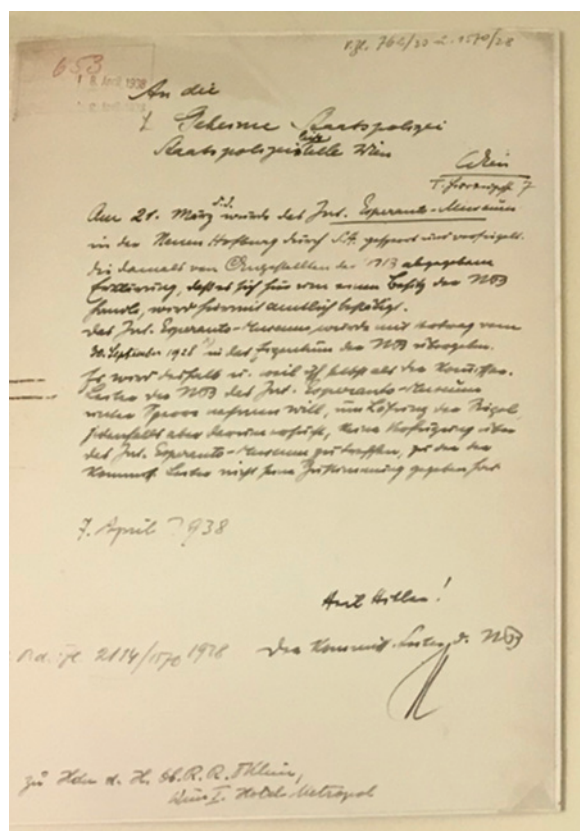 v. Zl. 766/33 u. 1570/28
653
8. April 1938
An die
Geheime Staatspolizei
Staatspolizeileitstelle Wien
Wien
Am 21. März d.J. wurde das Int. Esperanto-Museum
in der Neuen Hofburg durch S.A. gesperrt und versiegelt.
Die damals von Angestellten der NB abgegebene
Erklärung, daß es sich hier um einen Besitz der NB
handle, wird hiermit amtlich bestätigt.
Das Int. Esperanto-Museum wurde mit Vertrag vom
30. September 1928 in das Eigentum der NB übergeben.
Es wird deshalb u. weil ich selbst als der Kommissar.
Leiter der NB das Int. Esperanto-Museum
unter Sperre nehmen will, um Lösung der Siegel,
jedenfalls aber darum ersucht, keine Verfügung über
das Int. Esperanto-Museum zu treffen, zu der der
kommiss. Leiter nicht seine Zustimmung gegeben hat.
7. April 1938
Heil Hitler!
Der kommiss. Leiter d. NB
Zl. 2114/1570 1928
zu Hdn d. H. Ob. R. R.
Wien I. Hotel Metropol